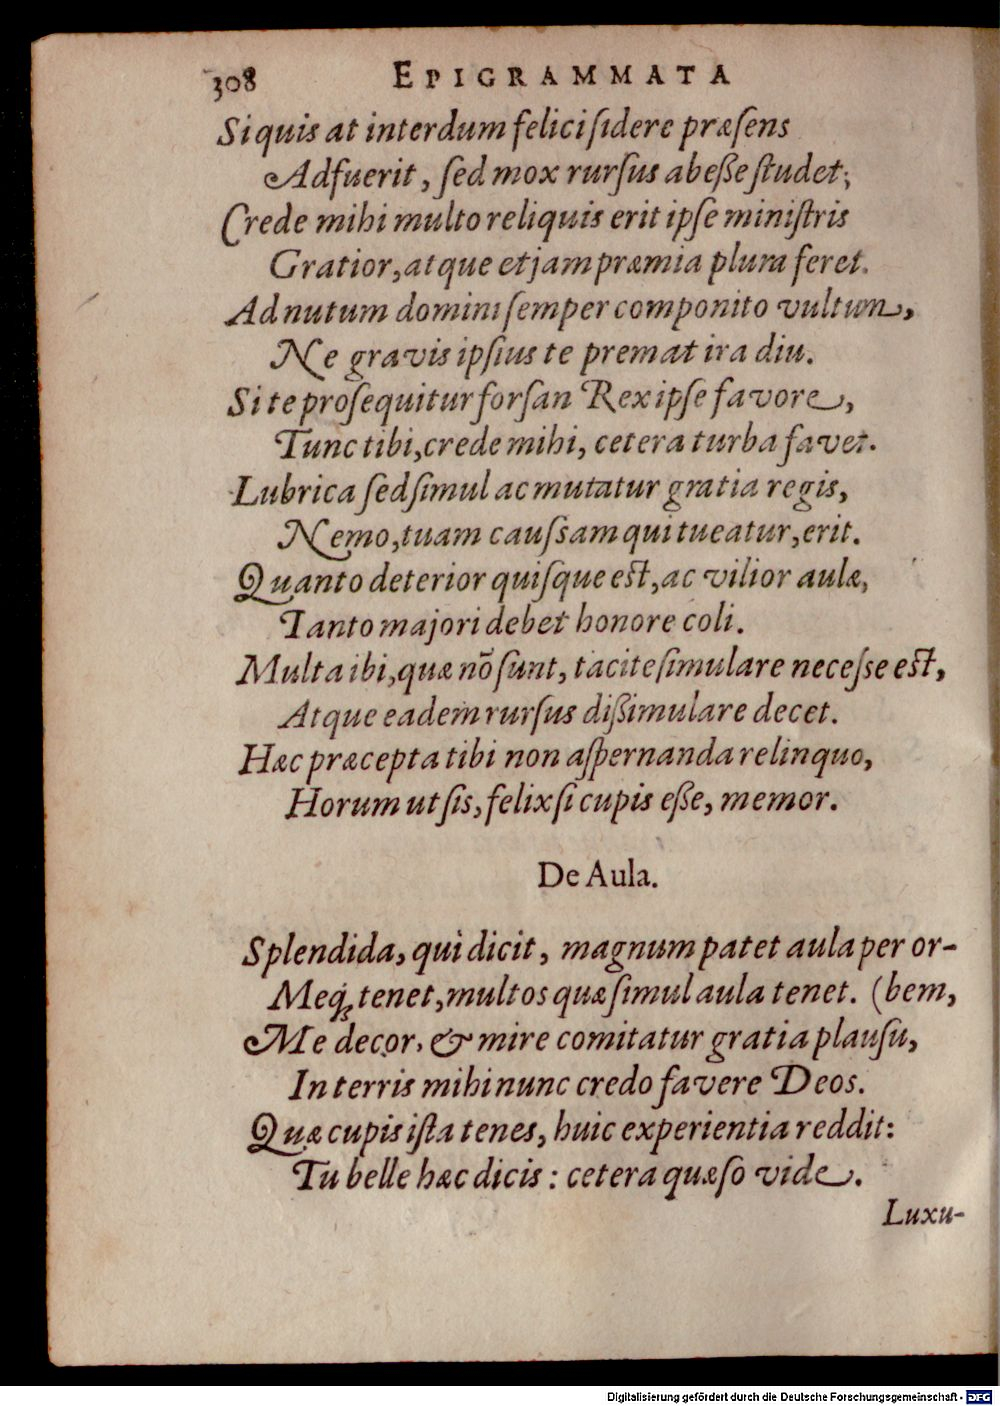 308 EPIGRAMMATA
Si quis at interdum felici ſidere præſens
Adfuerit, ſed mox rurſus abeßе ſtudet;
Crede mihi multo reliquis erit ipſe miniſtris
Gratior, atque etjam præmia plura feret.
Ad nutum domini ſemper componito vultum,
Ne gravis ipſius te premat ira diu.
Si te proſequitur forſan Rex ipſe favore,
Tunc tibi, crede mihi, cetera turba favet.
Lubrica ſed ſimul ac mutatur gratia regis,
Nemo, tuam cauſsam qui tueatur, erit.
Quanto deterior quiſque eſt, ac vilior aulæ,
Tanto majori debet honore coli.
Multa ibi, quæ nō ſunt, tacite ſimulare neceſse eſt,
Atque eadem rurſus dißimulare decet.
Hæc præcepta tibi non aſpernanda relinquo,
Horum ut ſis, felix ſi cupis eße, memor.
De Aula.
Splendida, qui dicit, magnum patet aula per or-
Meq́; tenet, multos quæ ſimul aula tenet. (bem,
Me decor, & mire comitatur gratia plauſu,
In terris mihi nunc credo favere Deos.
Quæ cupis iſta tenes, huic experientia reddit:
Tu belle hæc dicis: cetera quæſo vide.
Luxu-
Digitalisierung gefördert durch die Deutsche Forschungsgemeinschaft - DFG